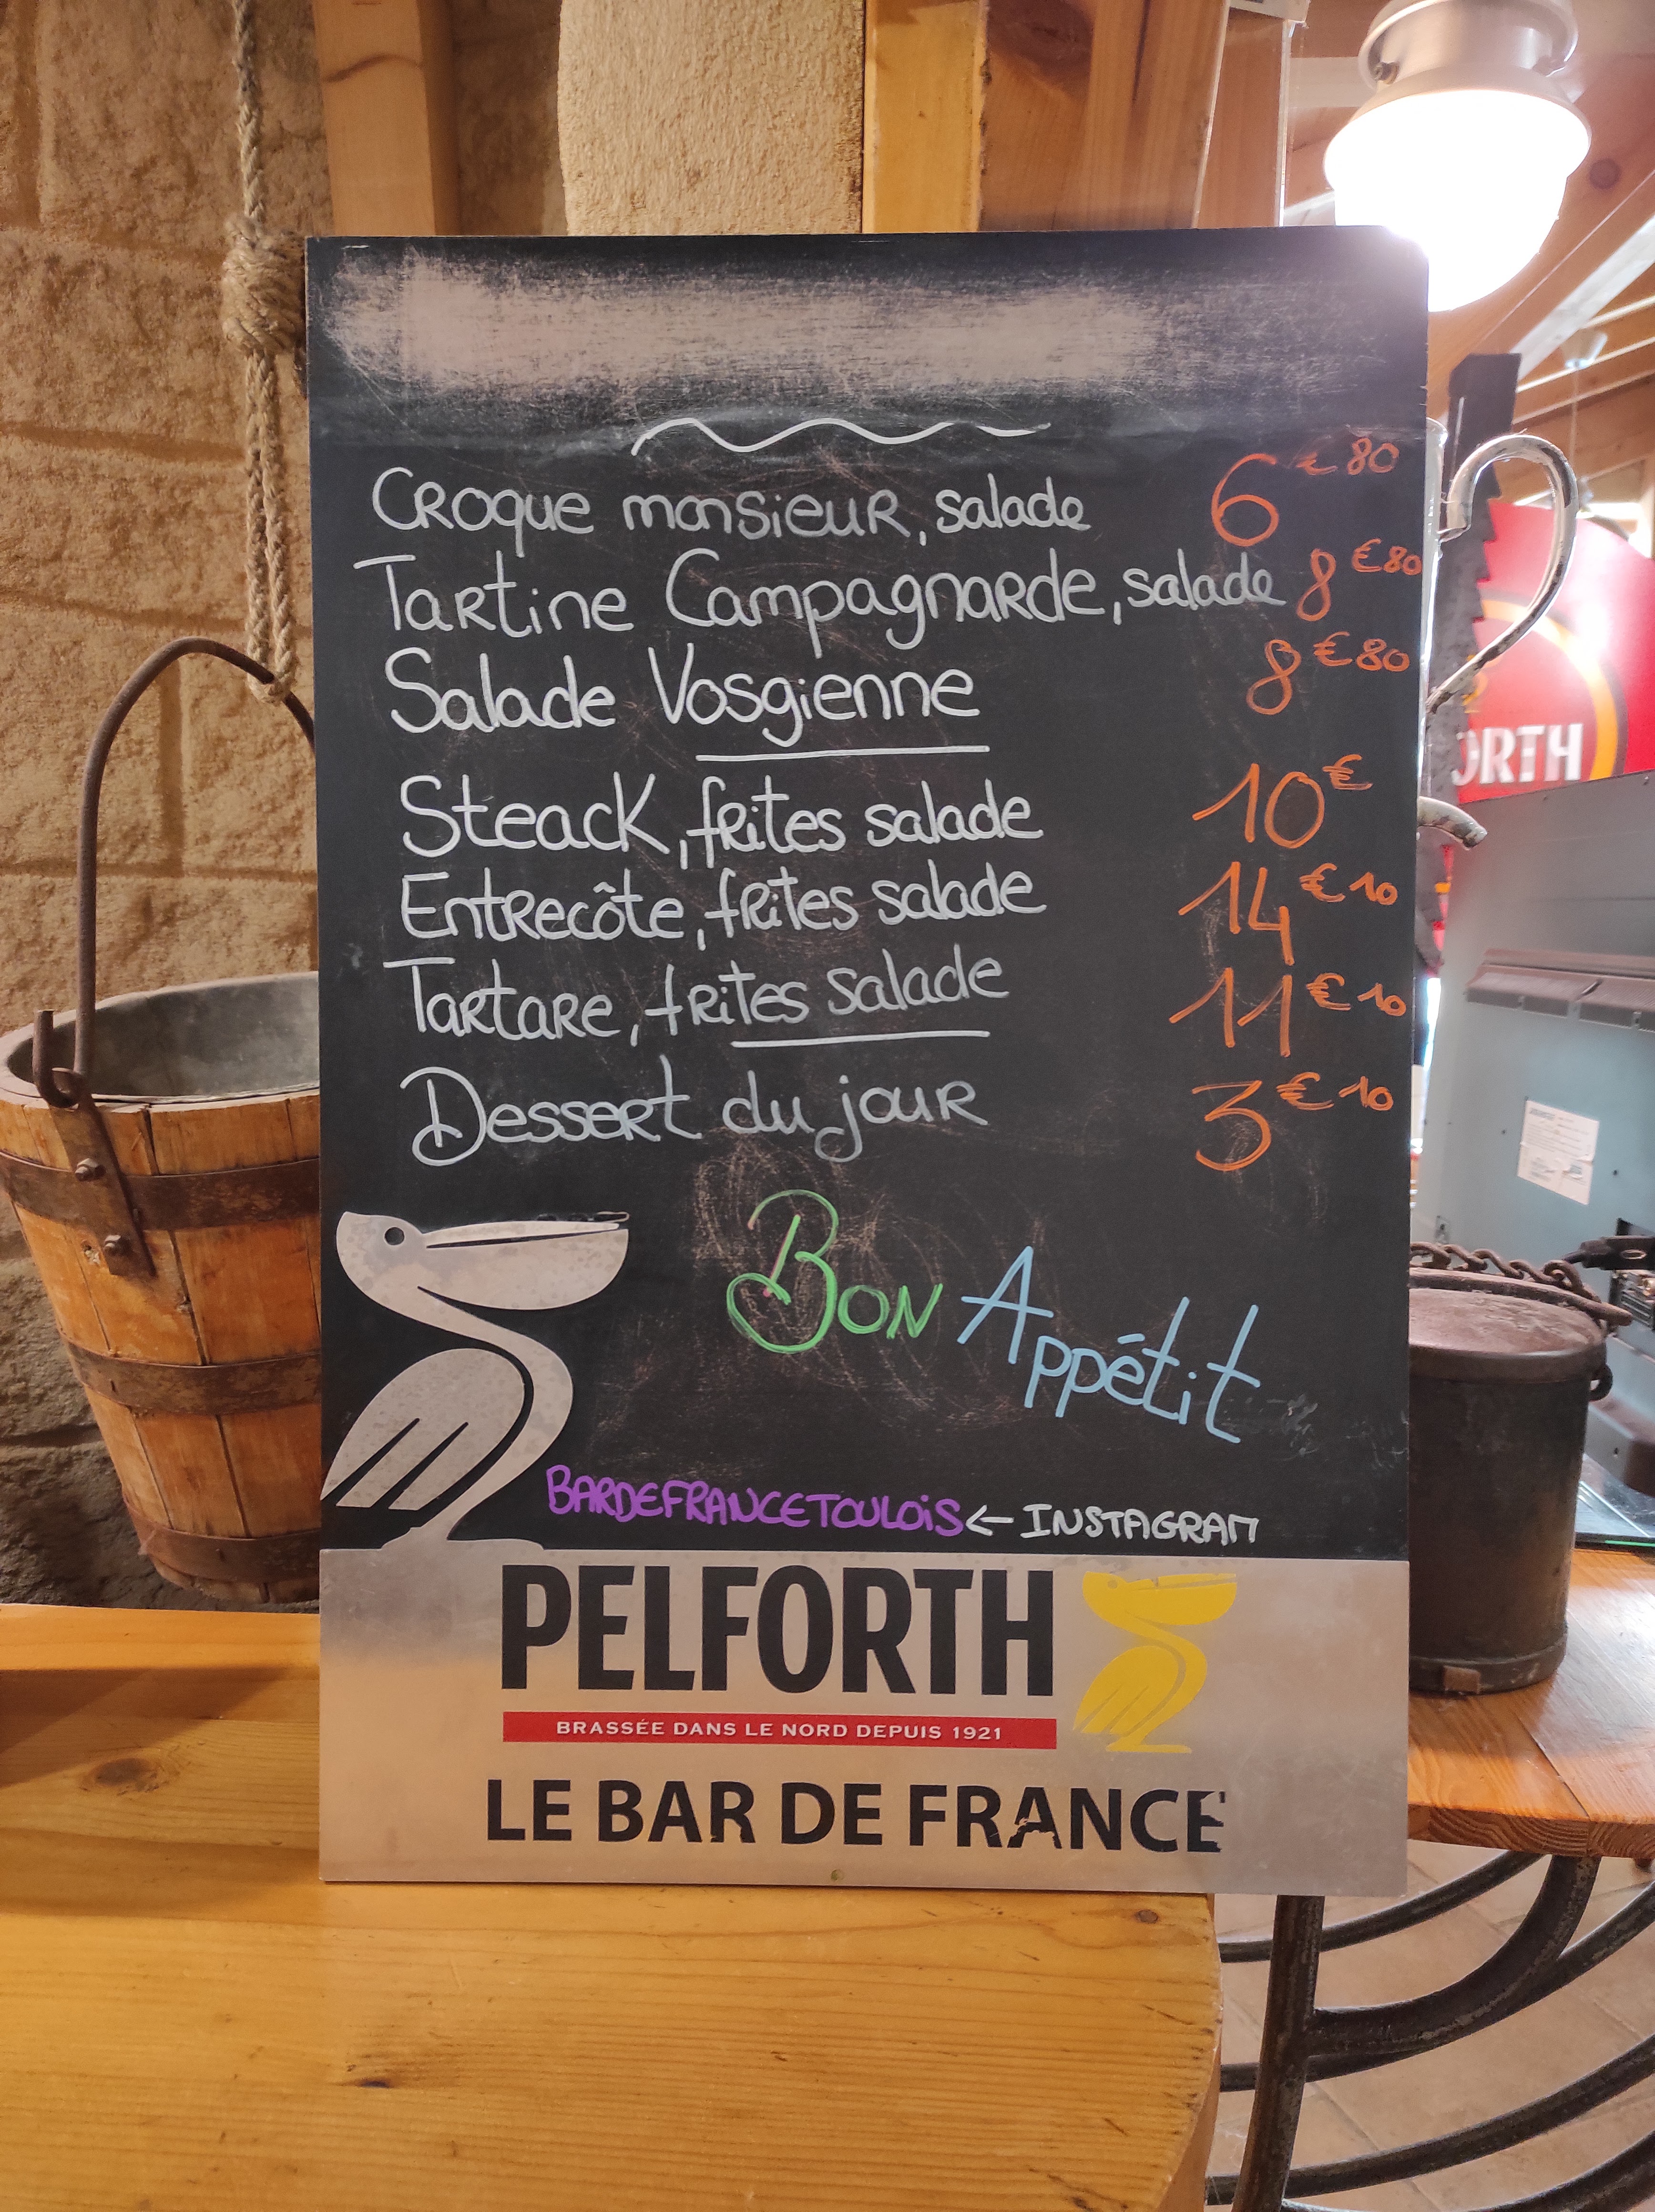 Croque monsieur, salade 6€80
Tartine Campagnarde, salade 8€80
Salade Vosgienne 8€80
Steack, frites salade 10€
Entrecôte, frites salade 14€10
Tartare, frites salade 11€10
Dessert du jour 3€10
Bon Appétit
BARDEFRANCETOULOIS ← INSTAGRAM
PELFORTH
BRASSÉE DANS LE NORD DEPUIS 1921
LE BAR DE FRANCE
ORTH